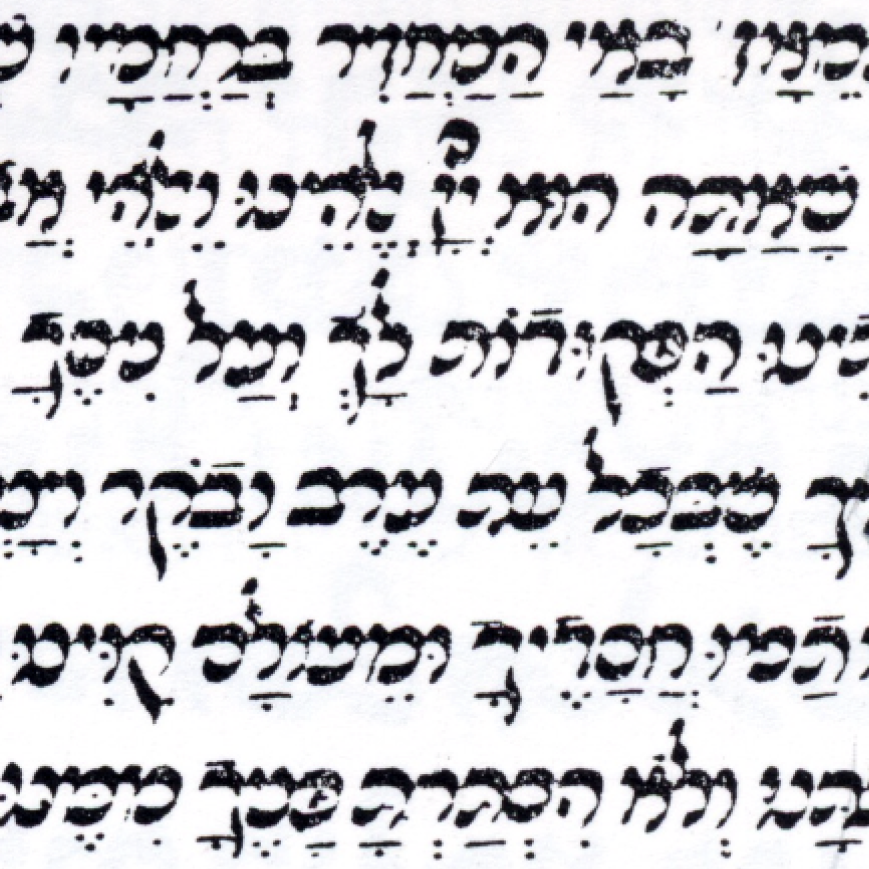 מֵאָז בָּאַיָ הַמַחֲזִיר בְרַחֲמָיו
שָׁאַתָּה הוּא יְיָ אֱלֹהֵינוּ וֵאלֹהֵי
הַפְּקוּדוֹת לָךְ וְעַל נִסֶיךָ
שֶׁבְּכָל עֵת עֶרֶב וָבֹקֶר
תַמּוּ חֲסָדֶיךָ וּמֵעוֹלָם קִוִּינוּ
וְלֹא הִסְתַּרְתָּ פָנֶיךָ מִמֶּנּוּ